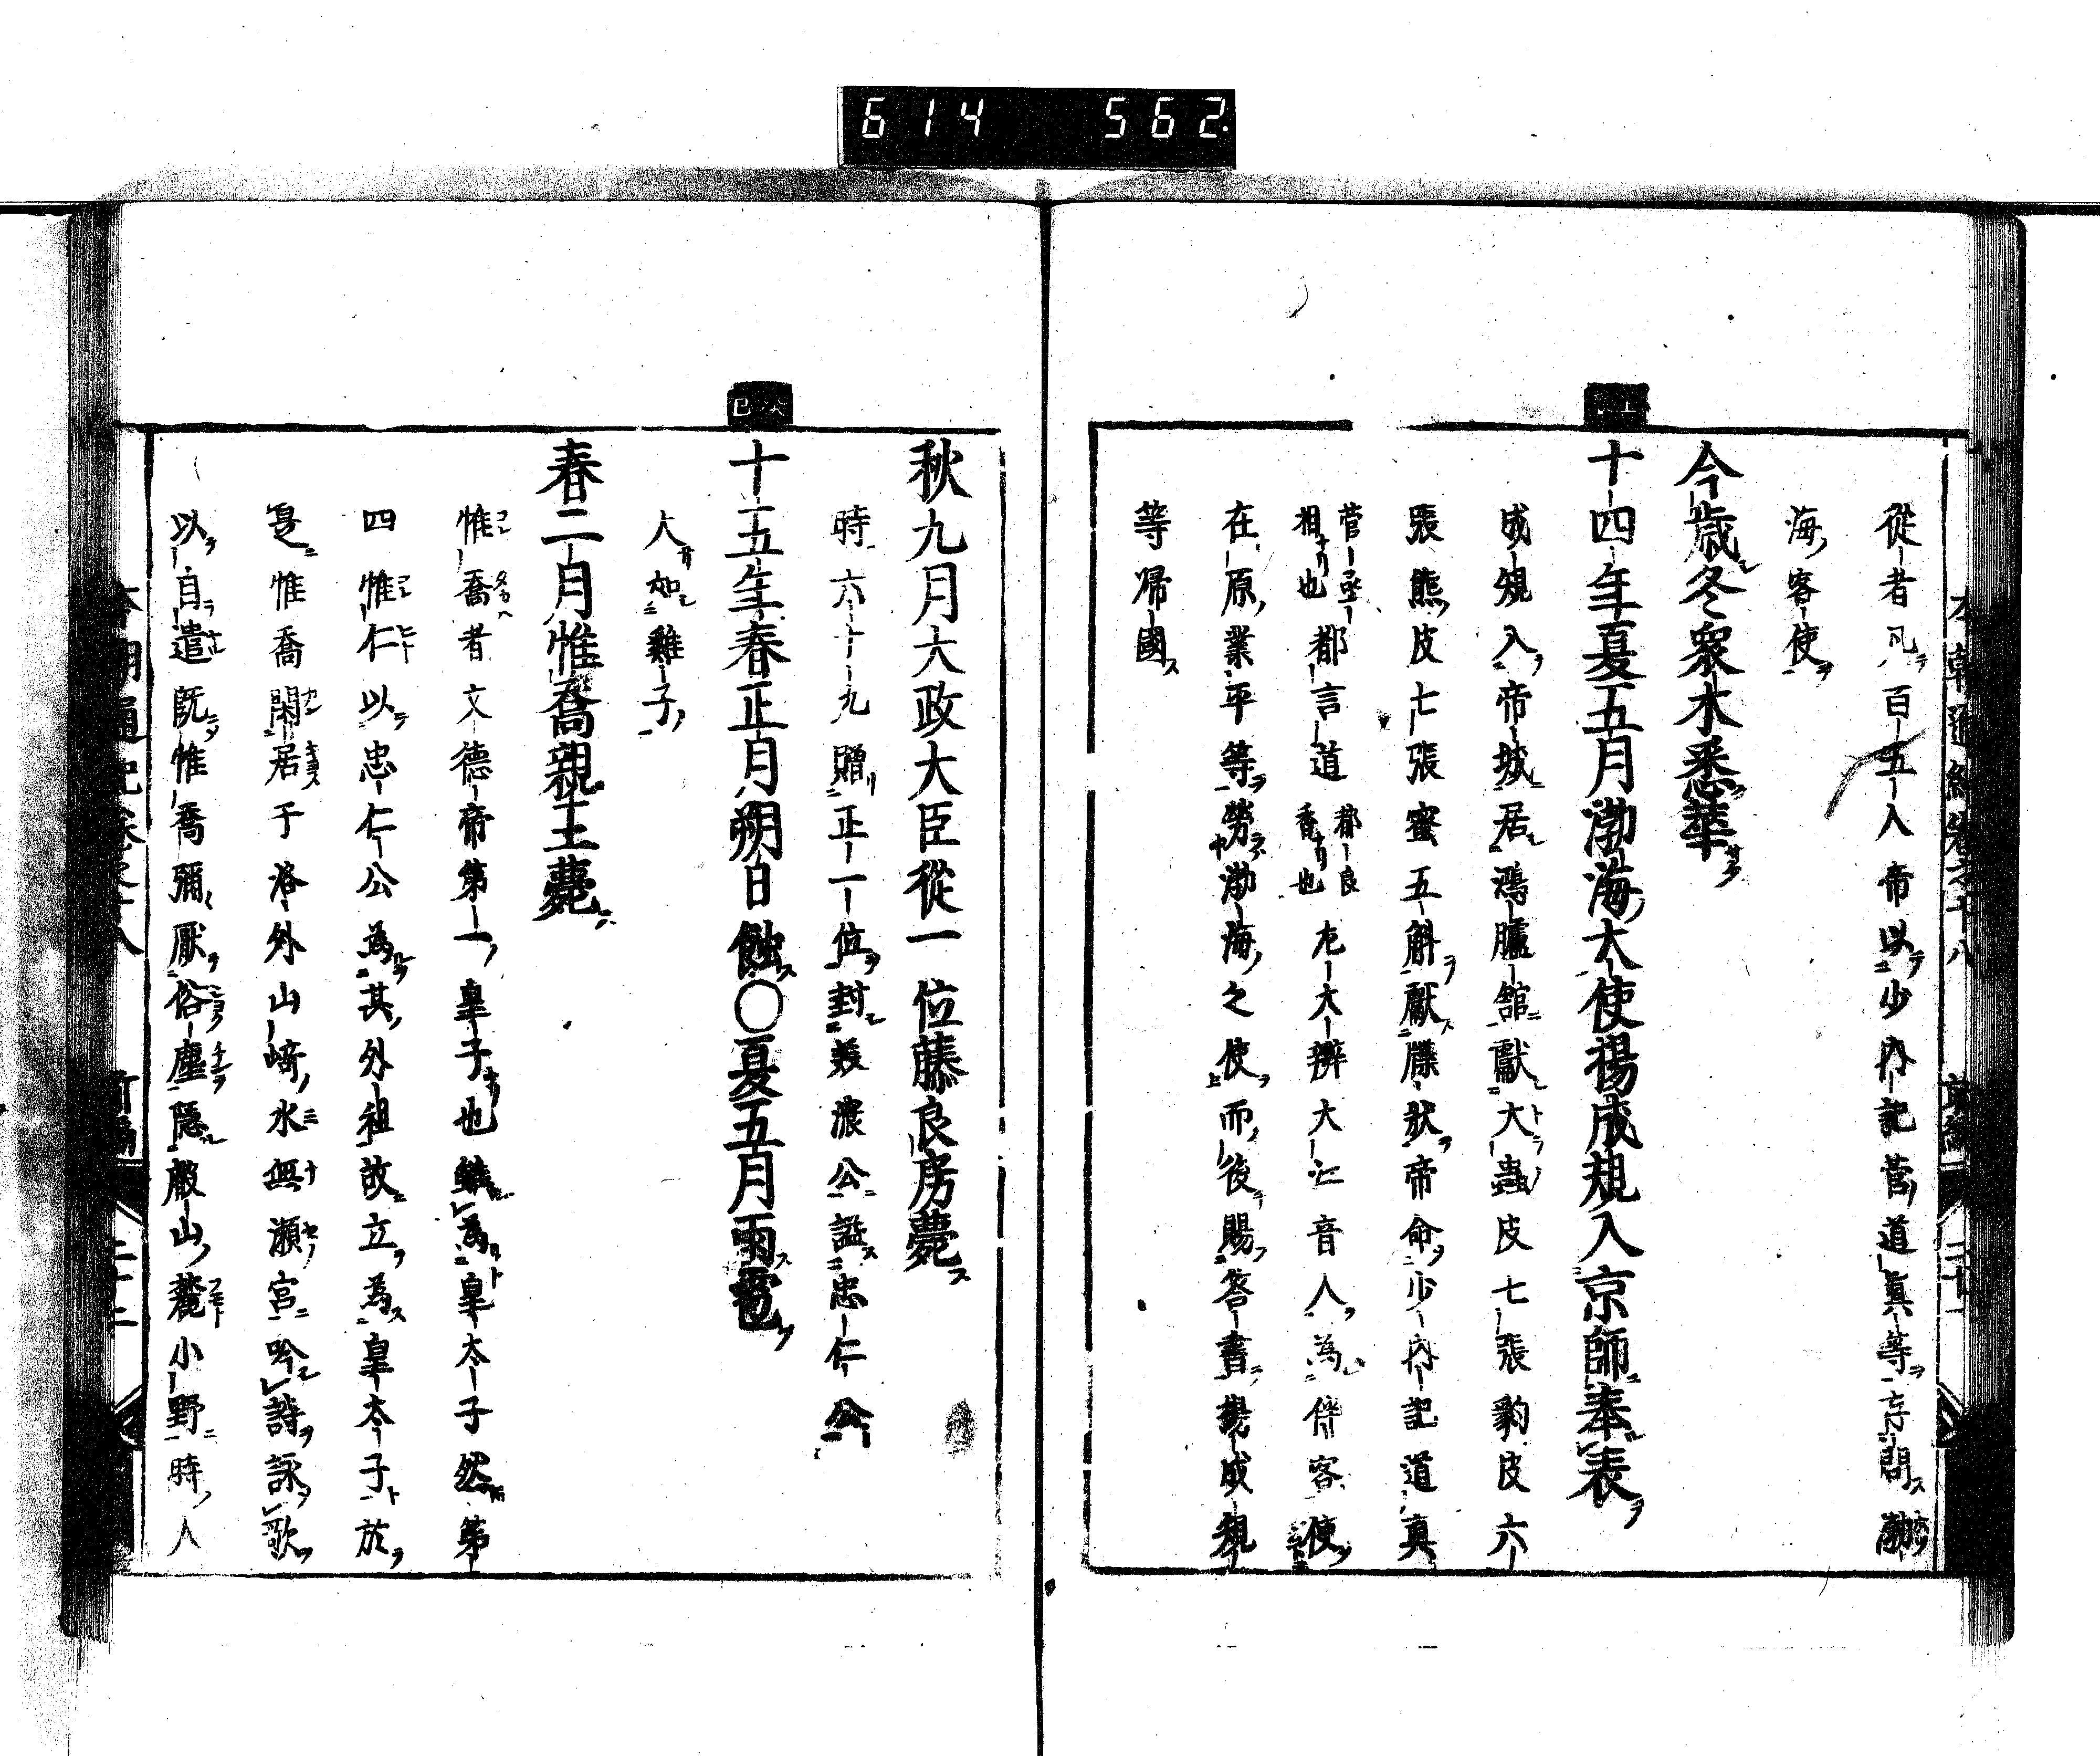 614 562
從者凡百五人帝以少內記菅道眞等存問渤
海客使
今歲冬衆木悉華
十四年夏五月渤海大使楊成規入京師奉表
成規入帝城居鴻臚館獻大蟲皮七張豹皮六
張熊皮七張蜜五斛獻牒狀帝命少內記道真
菅丞相ナリ也都言道都良香ナリ也尤大辨大江音人為伴客使
在原業平等勞渤海之使而後賜答書楊成規
等帰國
秋九月大政大臣從一位藤良房薨
時六十九贈正一位封美濃公謚忠仁公
癸巳
十五年春正月朔日蝕〇夏五月雨雹
大如雞子
春二月惟喬親王薨
惟喬者文德帝第一皇子也雖為皇太子然第
四惟仁以忠仁公為其外祖故立為皇太子於
是惟喬閑居于洛外山崎水無瀬宮吟詩詠歌
以自遣既惟喬彌厭俗塵隱叡山麓小野時人
本朝通紀卷之十八 前編 二十一
本朝通紀卷之十八 前編 二十二